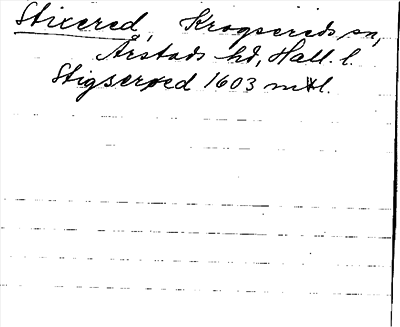 Stixered, Krogsereds sn,
Årstads hd, Hall. l.
Stigseröed 1603 mtl.